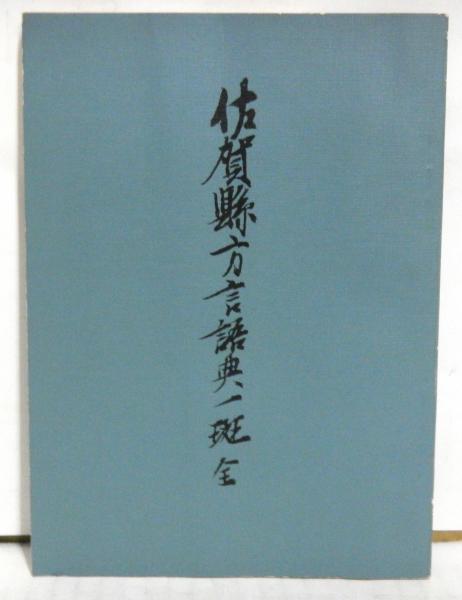 佐賀縣方言語典一斑 全